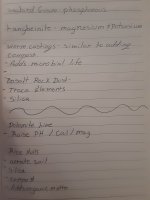 Seabird Guano - phosphorous
Langbeinite - magnesium & Potassium
Worm castings - similar to add
compost
- Adds microbial life
Basalt Rock Dust -
- Trace Elements
- Silica
Dolomite Lime
- Raise PH / Cal / mag
Rice Hulls
- aerate soil
- silica
- Adds organic matter